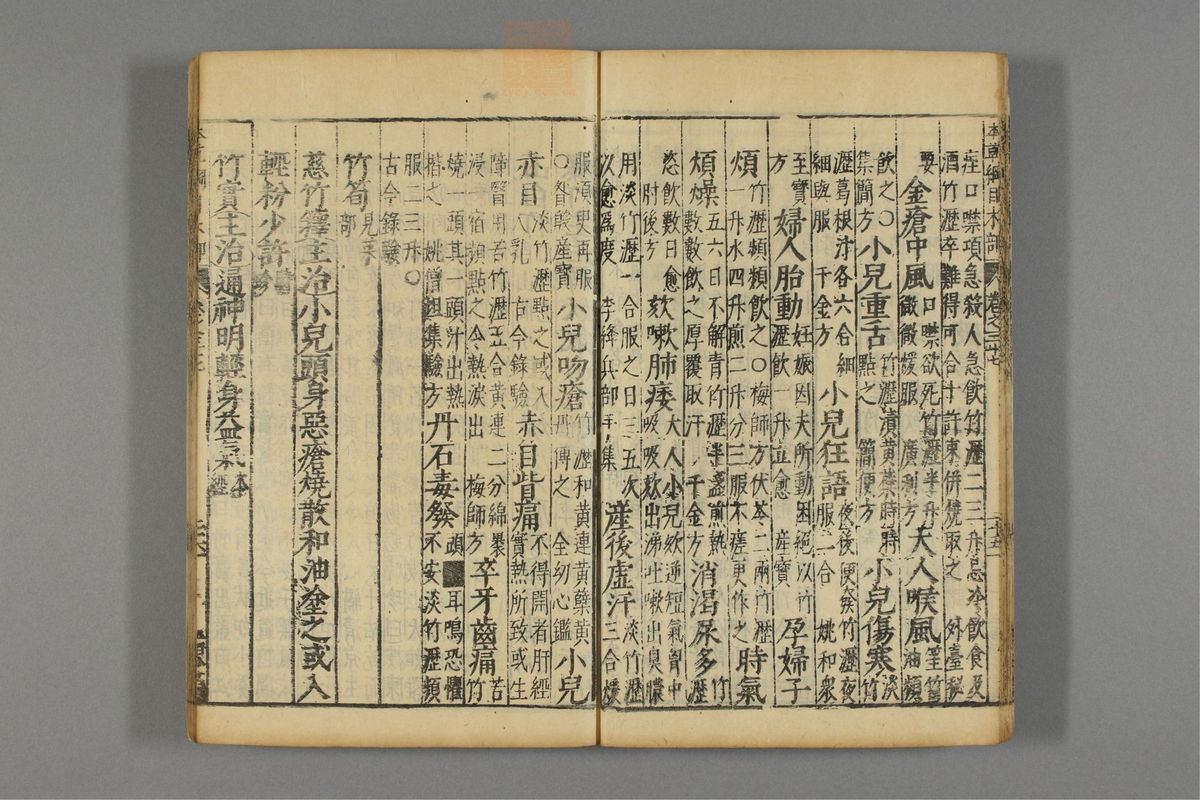 本草綱目木部 卷之三十七 二十五
痓口噤項急殺人急飲竹瀝二三升忌冷飲食及
酒竹瀝卒難得可合十許束併燒取之 外臺秘
要 金瘡中風 口噤欲死竹瀝半升微微煖服 廣利方 大人喉風 篁竹油頻
飲之○集簡方 小兒重舌 竹瀝漬黃蘗時時點之 簡便方 小兒傷寒 淡竹
瀝葛根汁各六合細細與服 千金方 小兒狂語 夜後便發竹瀝夜服二合 姚和衆
至寶方 婦人胎動 妊娠因夫所動困絕以竹瀝飲一升立愈 產寶 孕婦子
煩 竹瀝頻頻飲之○梅師方茯苓二兩竹瀝一升水四升煎二升分三服不瘥更作之 時氣
煩燥 五六日不解青竹瀝半盞煎熱數數飲之厚覆取汗 千金方 消渴尿多 竹瀝
恣飲數日愈 肘後方 欬嗽肺痿 大人小兒欬逆短氣胷中吸吸欬出涕唾嗽出臭膿
用淡竹瀝一合服之日三五次以愈爲度 李絳兵部手集 產後虛汗 淡竹瀝三合煖
服須更再服○昝殷產寶 小兒吻瘡 竹瀝和黃連黃蘗黃丹傅之 全幼心鑑 小兒
赤目 淡竹瀝點之或入人乳 古今錄驗 赤目眥痛 不得開者肝經實熱所致或生
障翳用苦竹瀝五合黃連二分綿裹浸一宿頻點之令熱淚出 梅師方 卒牙齒痛 苦竹
燒一頭其一頭汁出熱揩之 姚僧坦集驗方 丹石毒發 頭耳鳴恐懼不安淡竹瀝頻
服二三升○古今錄驗
竹筍 見菜部
慈竹籜主治小兒頭身惡瘡燒散和油塗之或入
輕粉少許 時珍
竹實主治通神明輕身益氣 本經